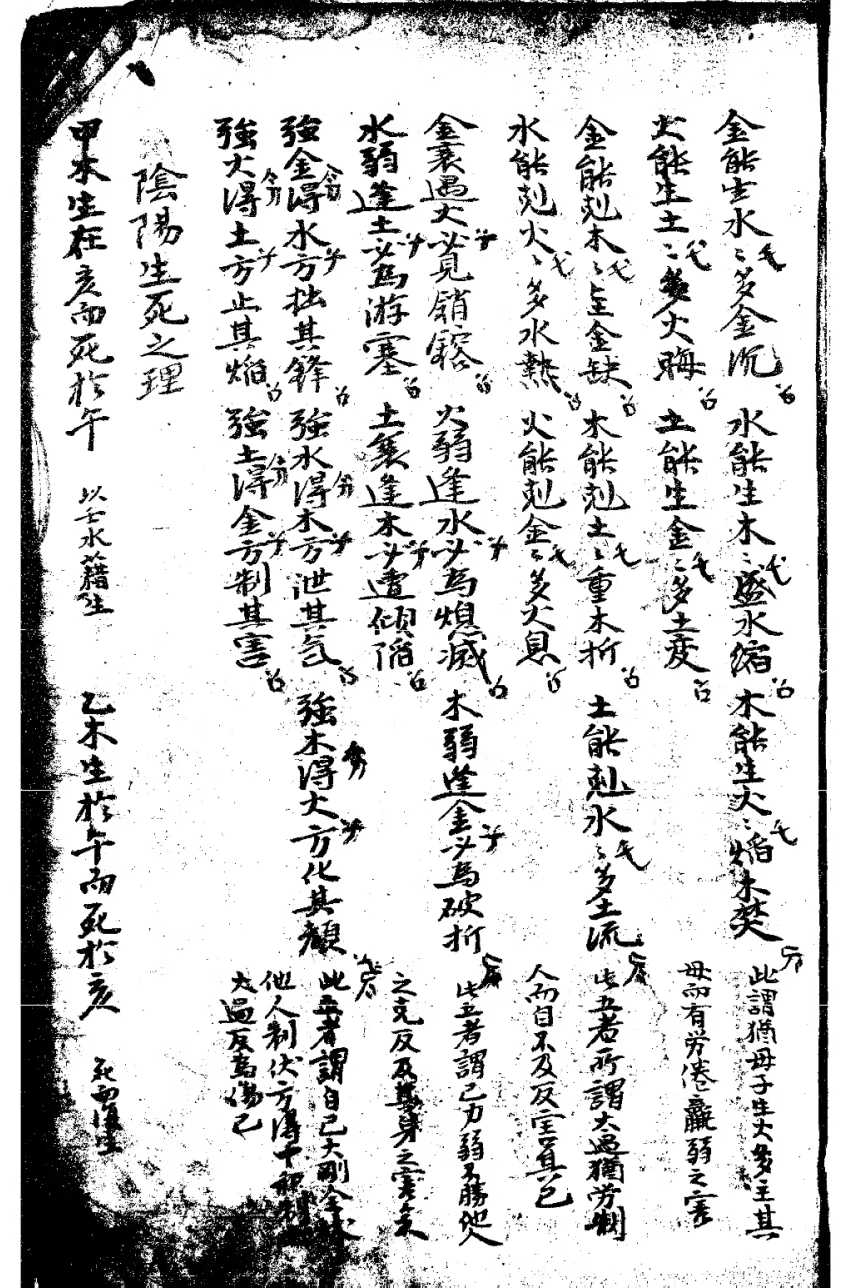 金能生水〻多金沉 水能生木〻盛水縮 木能生火〻焰木焚 此謂猶母子生大多主其
火能生土〻多火晦 土能生金〻多土変 母而有労倦羸弱之害
金能剋木〻坚金缺 木能剋土〻重木折 土能剋水〻多土流 此五者所謂太過猶労制
水能剋火〻多水熱 火能剋金〻多火息 人而自不及反害其己
金衰遇火必見銷鎔 火弱逢水必為熄滅 木弱逢金必為破折 此五者謂己力弱不勝他人
水弱逢土必為游塞 土衰逢木必遭傾陷 之克反及其身之害矣
強金得水方拙其鋒 強水得木方泄其气 強木得火方化其顏 此五者謂自己大剛
強火得土方止其焰 強土得金方制其害 他人制伏方得中和
太過反為傷己
陰陽生死之理
甲木生在亥而死於午 以壬水藉生 乙木生於午而死於亥 死而復生